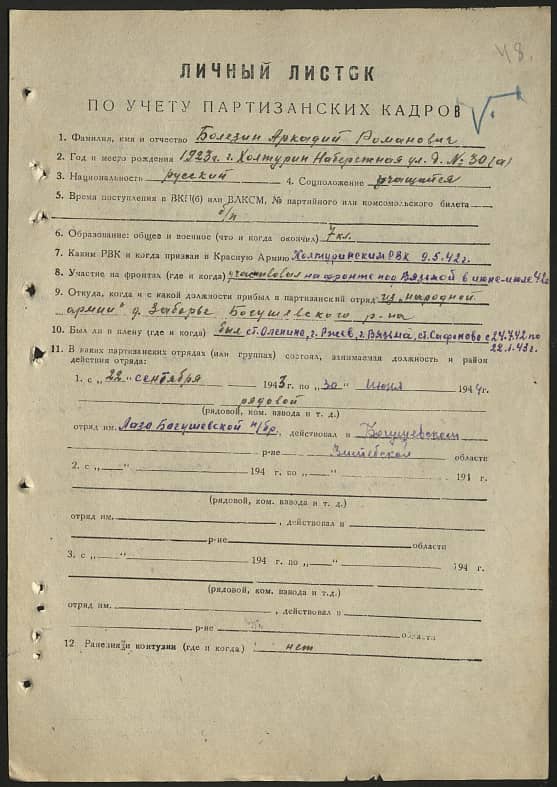 48.
ЛИЧНЫЙ ЛИСТОК
ПО УЧЕТУ ПАРТИЗАНСКИХ КАДРОВ
1. Фамилия, имя и отчество Болезин Аркадий Романович
2. Год и место рождения 1923г. г. Холтурин Набережная ул. д. № 30 (а)
3. Национальность русский 4. Соцположение учащийся
5. Время поступления в ВКП(б) или ВЛКСМ, № партийного или комсомольского билета
б/п
6. Образование: общее и военное (что и когда окончил) 7 кл.
7. Каким РВК и когда призван в Красную Армию Холтуринским РВК 9.5.42г.
8. Участие на фронтах (где и когда) участвовал на фронте под Вязьмой в июне-июле 42г
9. Откуда, когда и с какой должности прибыл в партизанский отряд из „народной
армии" д. Заборье Богушевского р-на
10. Был ли в плену (где и когда) был ст. Оленино, г. Ржев, г. Вязьма, ст. Сафоново с 24.7.42 по
22.1.43г.
11. В каких партизанских отрядах (или группах) состоял, занимаемая должность и район
действия отряда:
1. с „22" сентября 1943г. по „30" июня 1944г.
рядовой
(рядовой, ком. взвода и т. д.)
отряд им. Лазо Богушевской п/бр., действовал в Богушевском
р-не Витебской области
2. с „ " 194 г. по „ " 194 г.
(рядовой, ком. взвода и т. д.)
отряд им. , действовал в
р-не области
3. с „ " 194 г. по „ " 194 г.
(рядовой, ком. взвода и т.д.)
отряд им. , действовал в
р-не области
12. Ранения и контузии (где и когда) нет